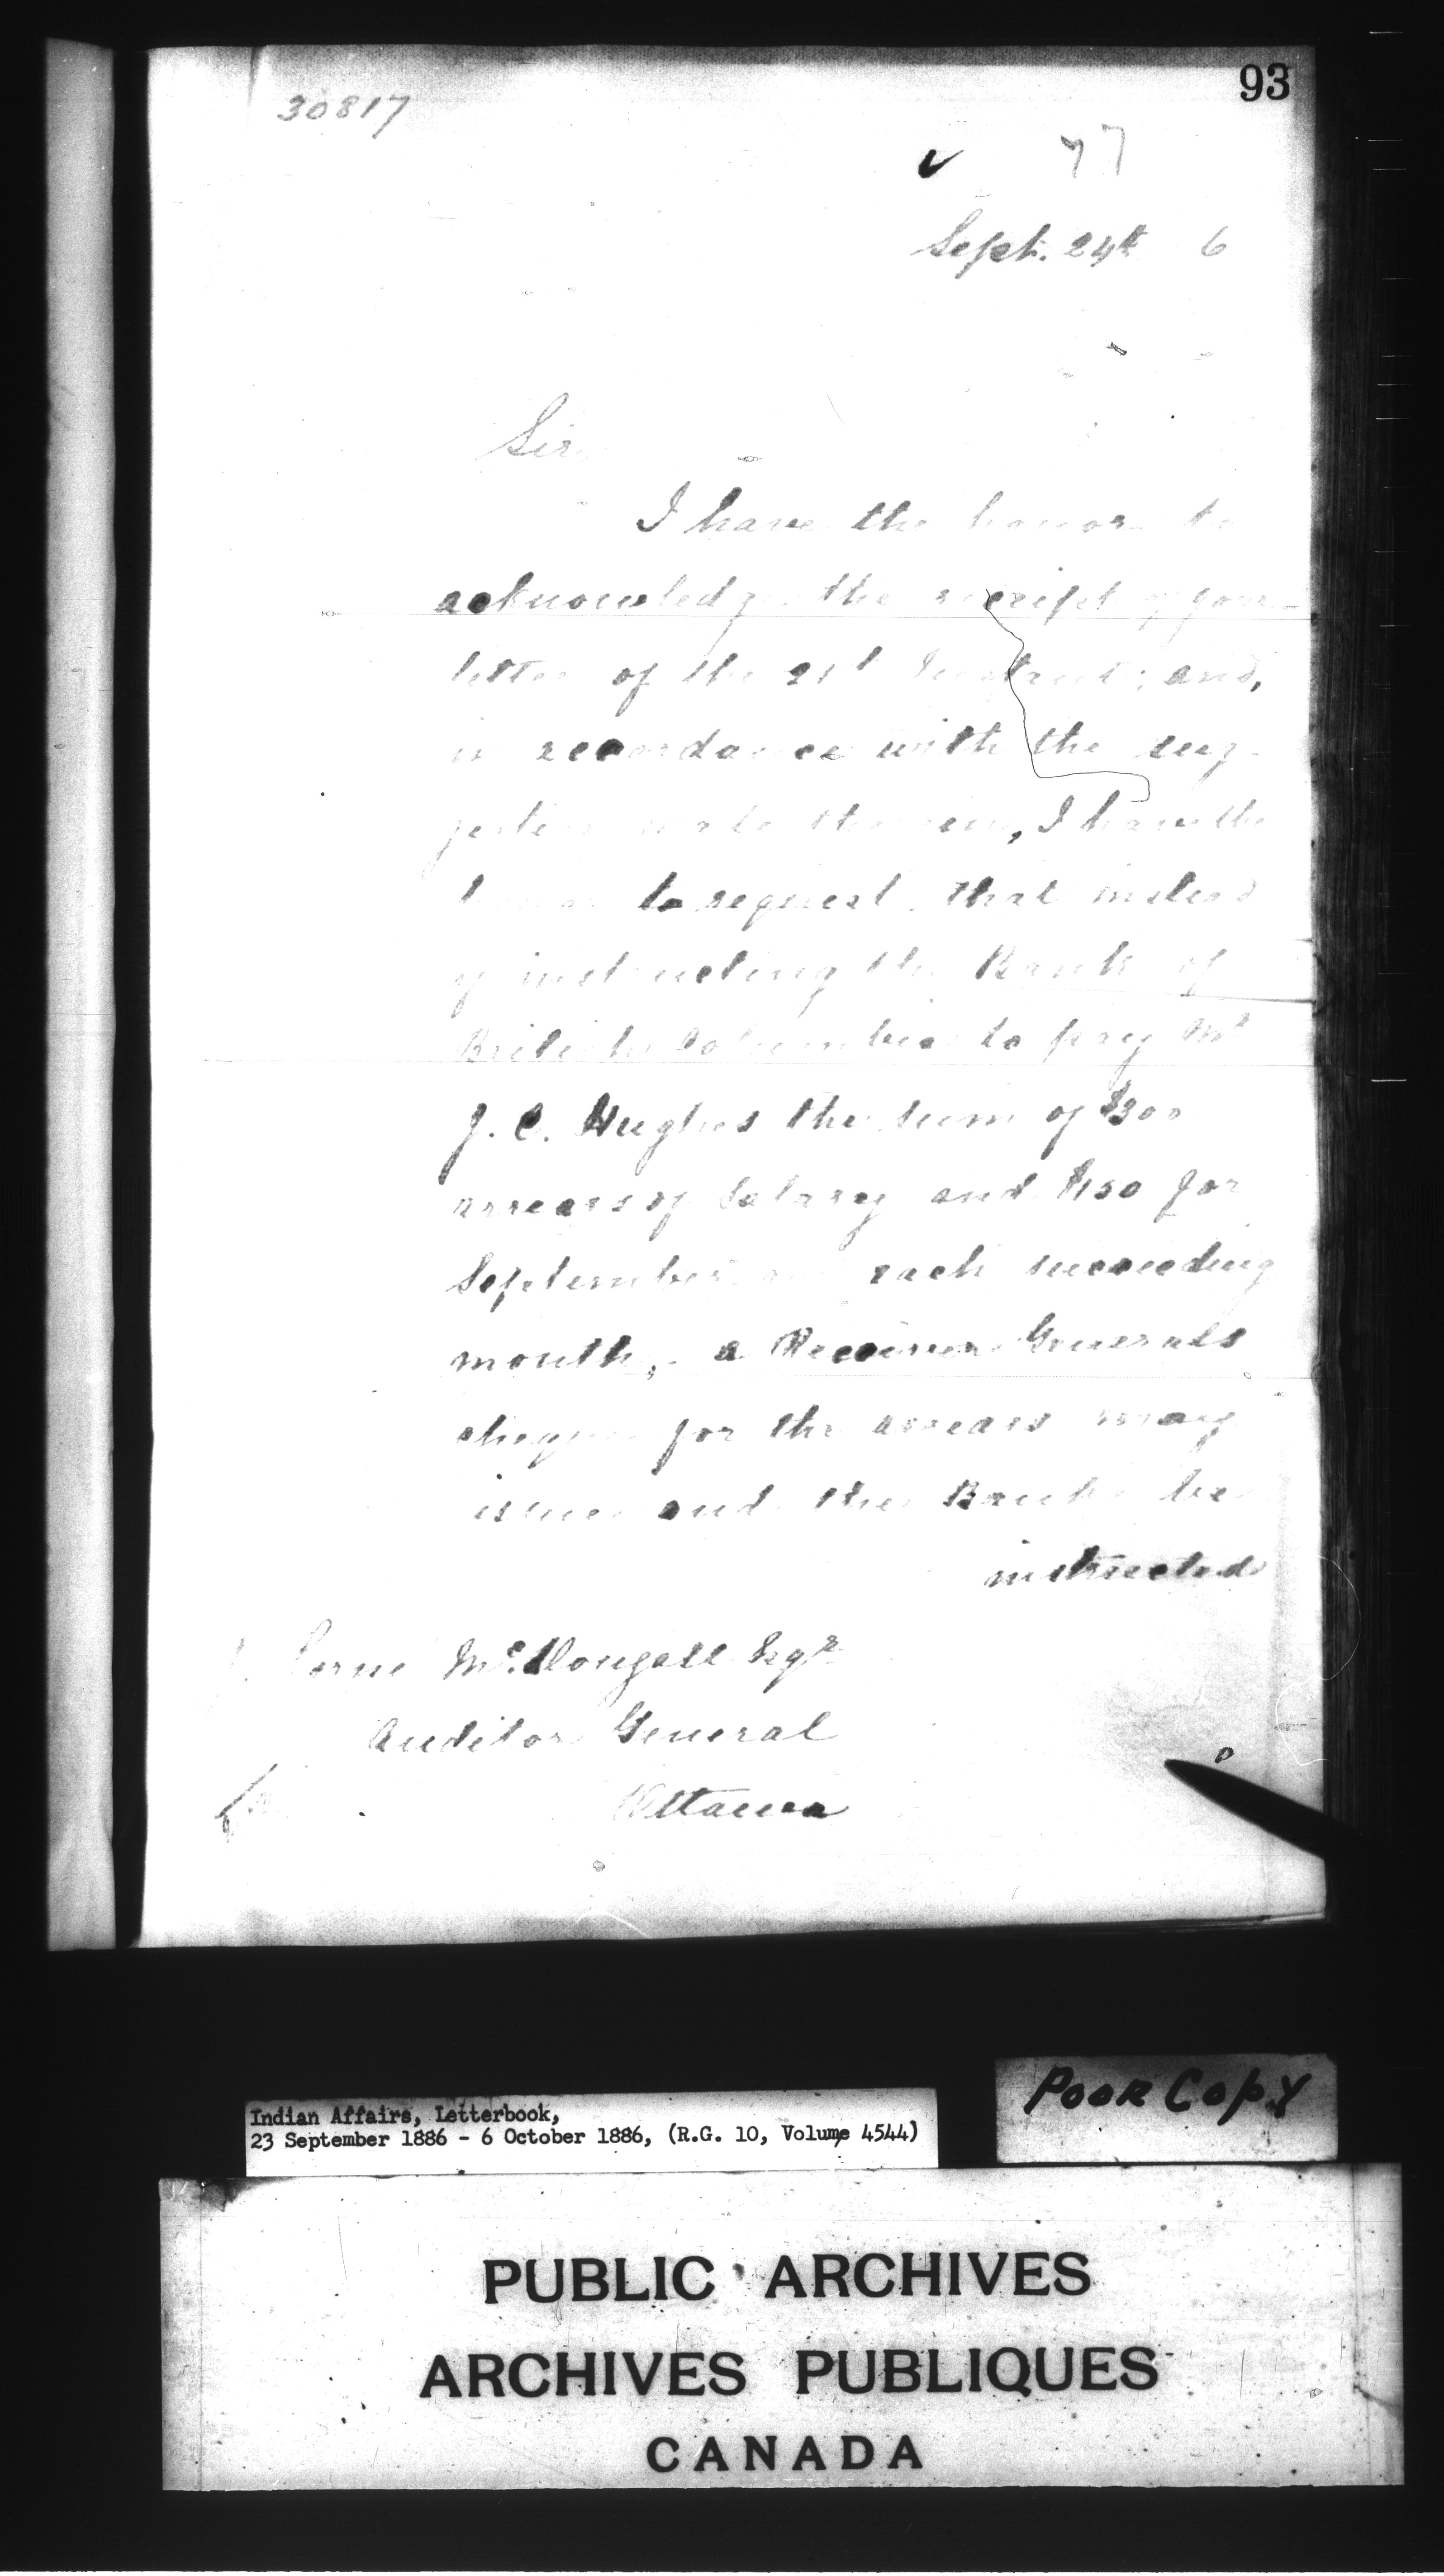 93
30817
77
Sept. 24th 6
Sir,
I have the honor to
acknowledge the receipt of your
letter of the 21st Instant; and,
in accordance with the sug-
gestion made therein, I have the
honor to request that instead
of instructing the Bank of
British Columbia to pay Mr
J. C. Hughes the sum of $300
arrears of Salary and $150 for
September and each succeeding
month, a Receiver Generals
cheque for the arrears may
issue and the Bank be
instructed
J. Lorne McDougall Esqr
Auditor General
Ottawa
Poor Copy
Indian Affairs, Letterbook,
23 September 1886 - 6 October 1886, (R.G. 10, Volume 4544)
PUBLIC ARCHIVES
ARCHIVES PUBLIQUES
CANADA